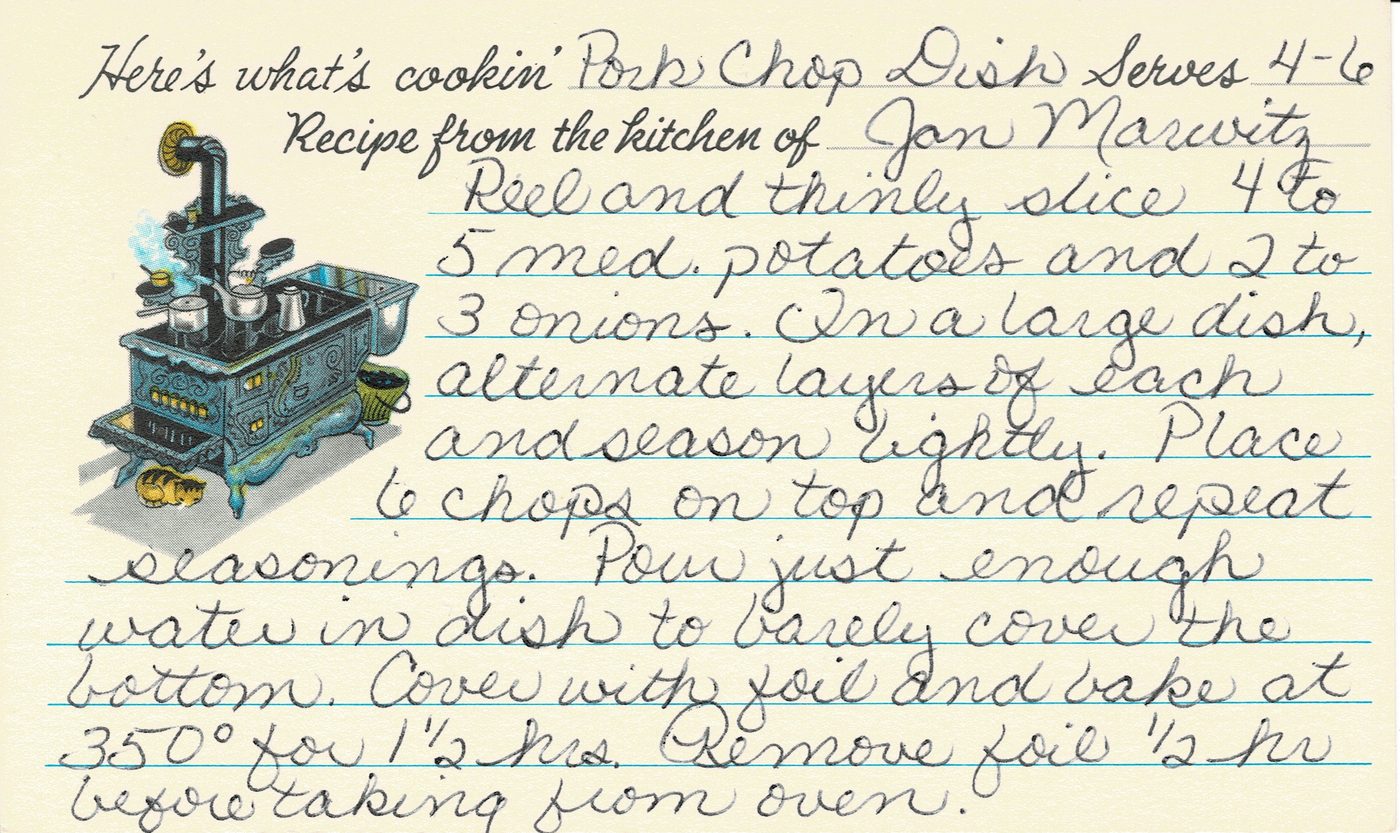 Here's what's cookin' Pork Chop Dish Serves 4-6
Recipe from the kitchen of Jan Marwitz
Peel and thinly slice 4 to
5 med. potatoes and 2 to
3 onions. In a large dish,
alternate layers of each
and season lightly. Place
6 chops on top and repeat
seasonings. Pour just enough
water in dish to barely cover the
bottom. Cover with foil and bake at
350° for 1 1/2 hrs. Remove foil 1/2 hr
before taking from oven.